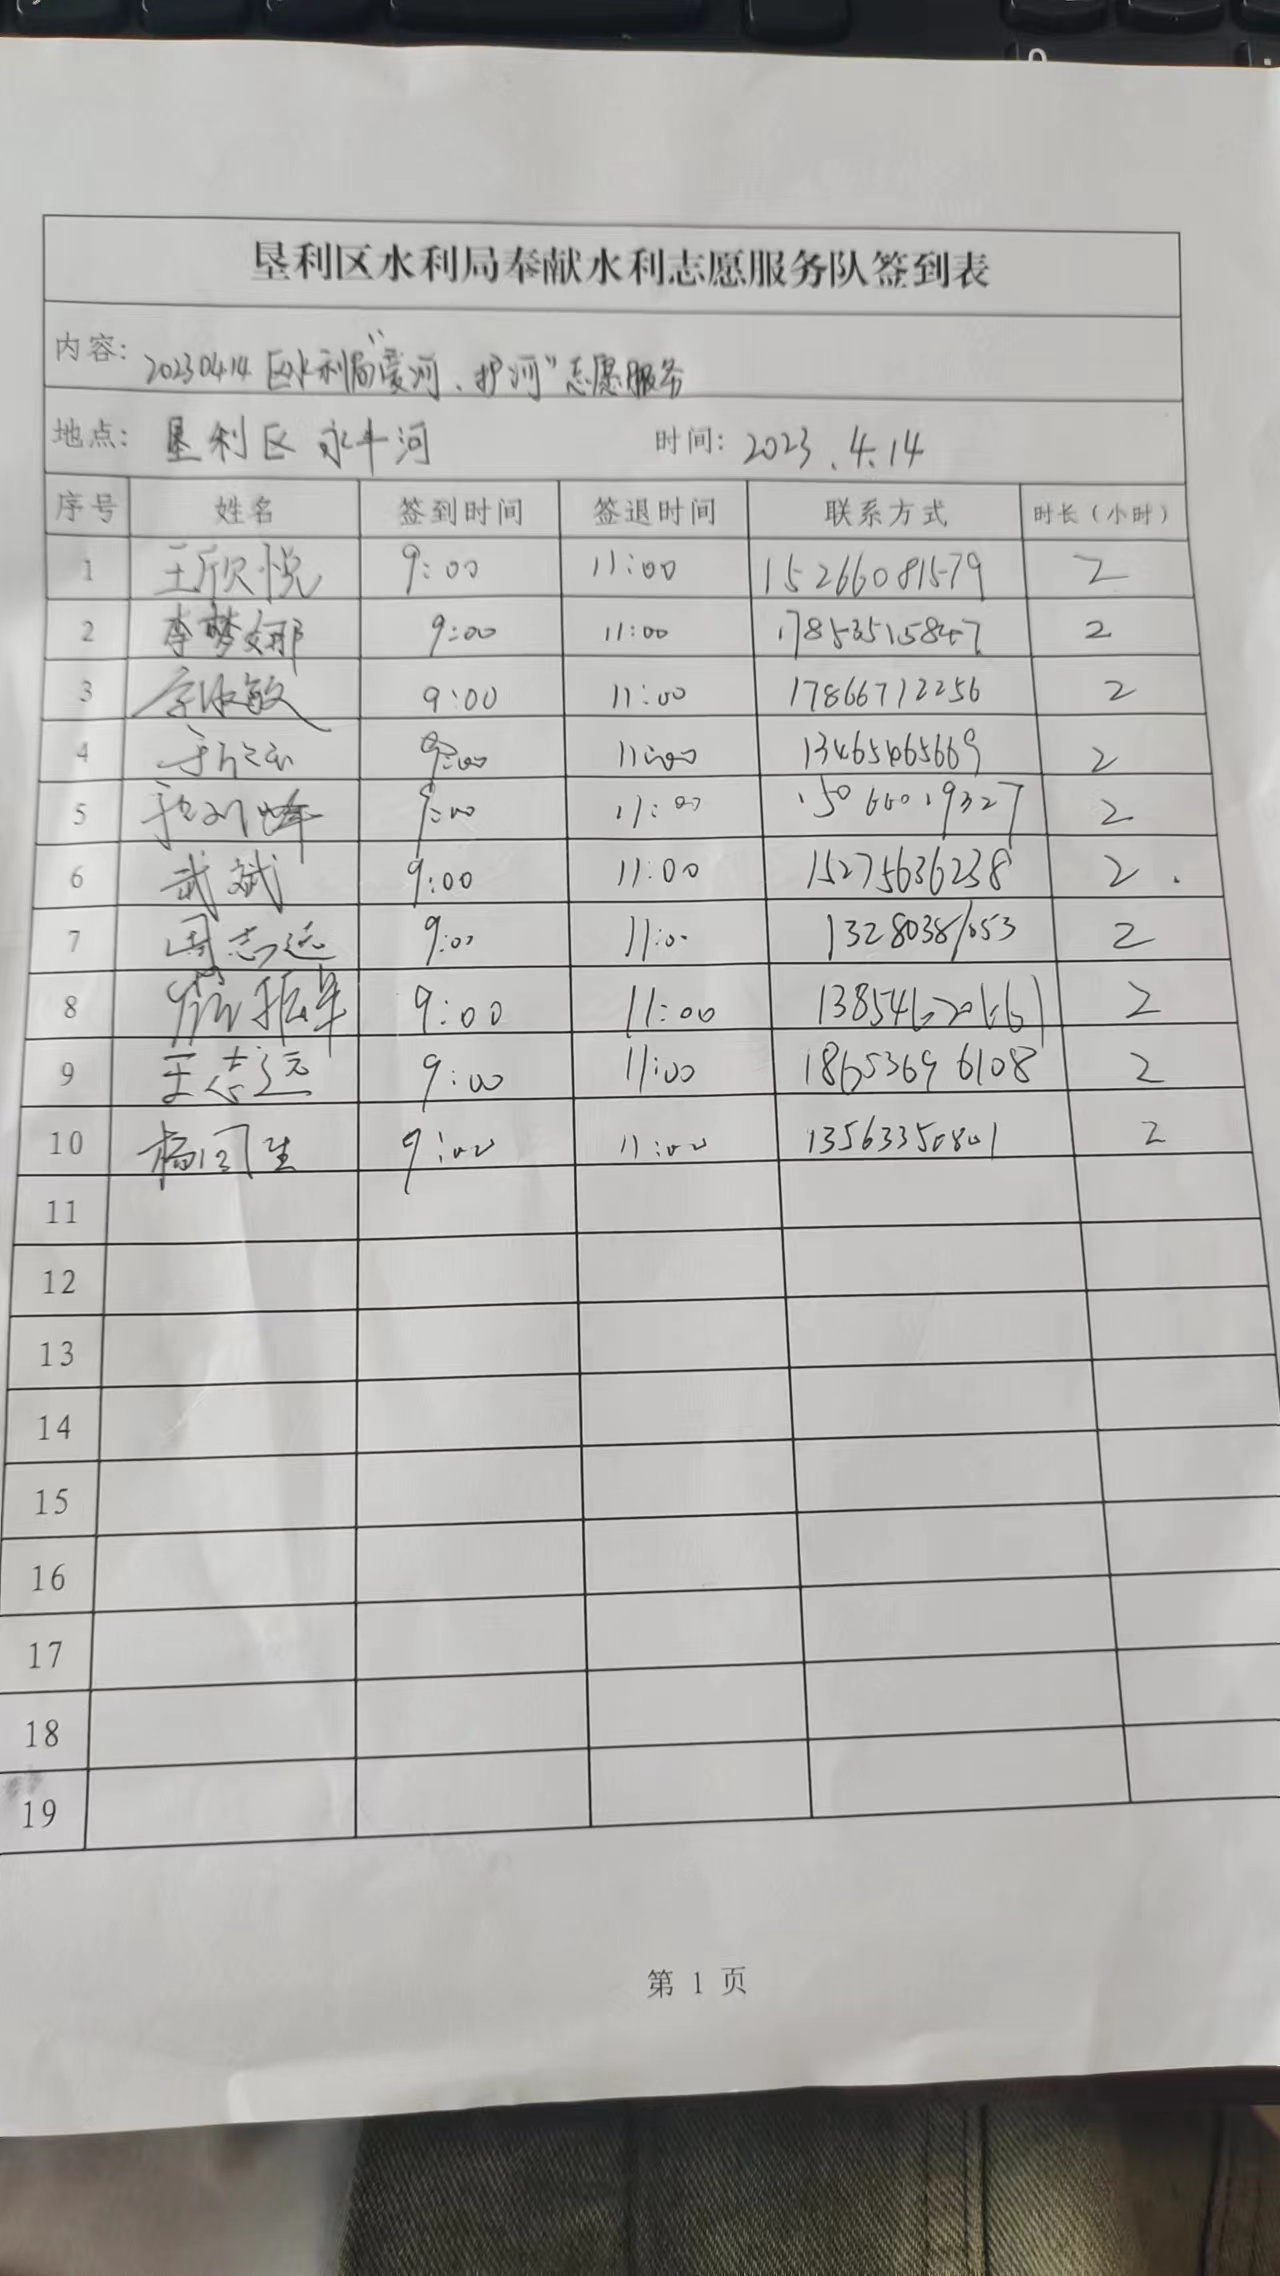 垦利区水利局奉献水利志愿服务队签到表
内容: 20230414 区水利局"爱河、护河"志愿服务
地点: 垦利区永丰河 时间: 2023.4.14
序号 姓名 签到时间 签退时间 联系方式 时长（小时）
1 王欣悦 9:00 11:00 15266081579 2
2 李梦娜 9:00 11:00 17853515847 2
3 9:00 11:00 17866712256 2
4 9:00 11:00 13465465669 2
5 9:00 11:00 15066019327 2
6 武斌 9:00 11:00 15275636238 2
7 周志远 9:00 11:00 13280381053 2
8 9:00 11:00 2
9 王志远 9:00 11:00 18653696108 2
10 9:00 11:00 13563350801 2
11
12
13
14
15
16
17
18
19
第 1 页